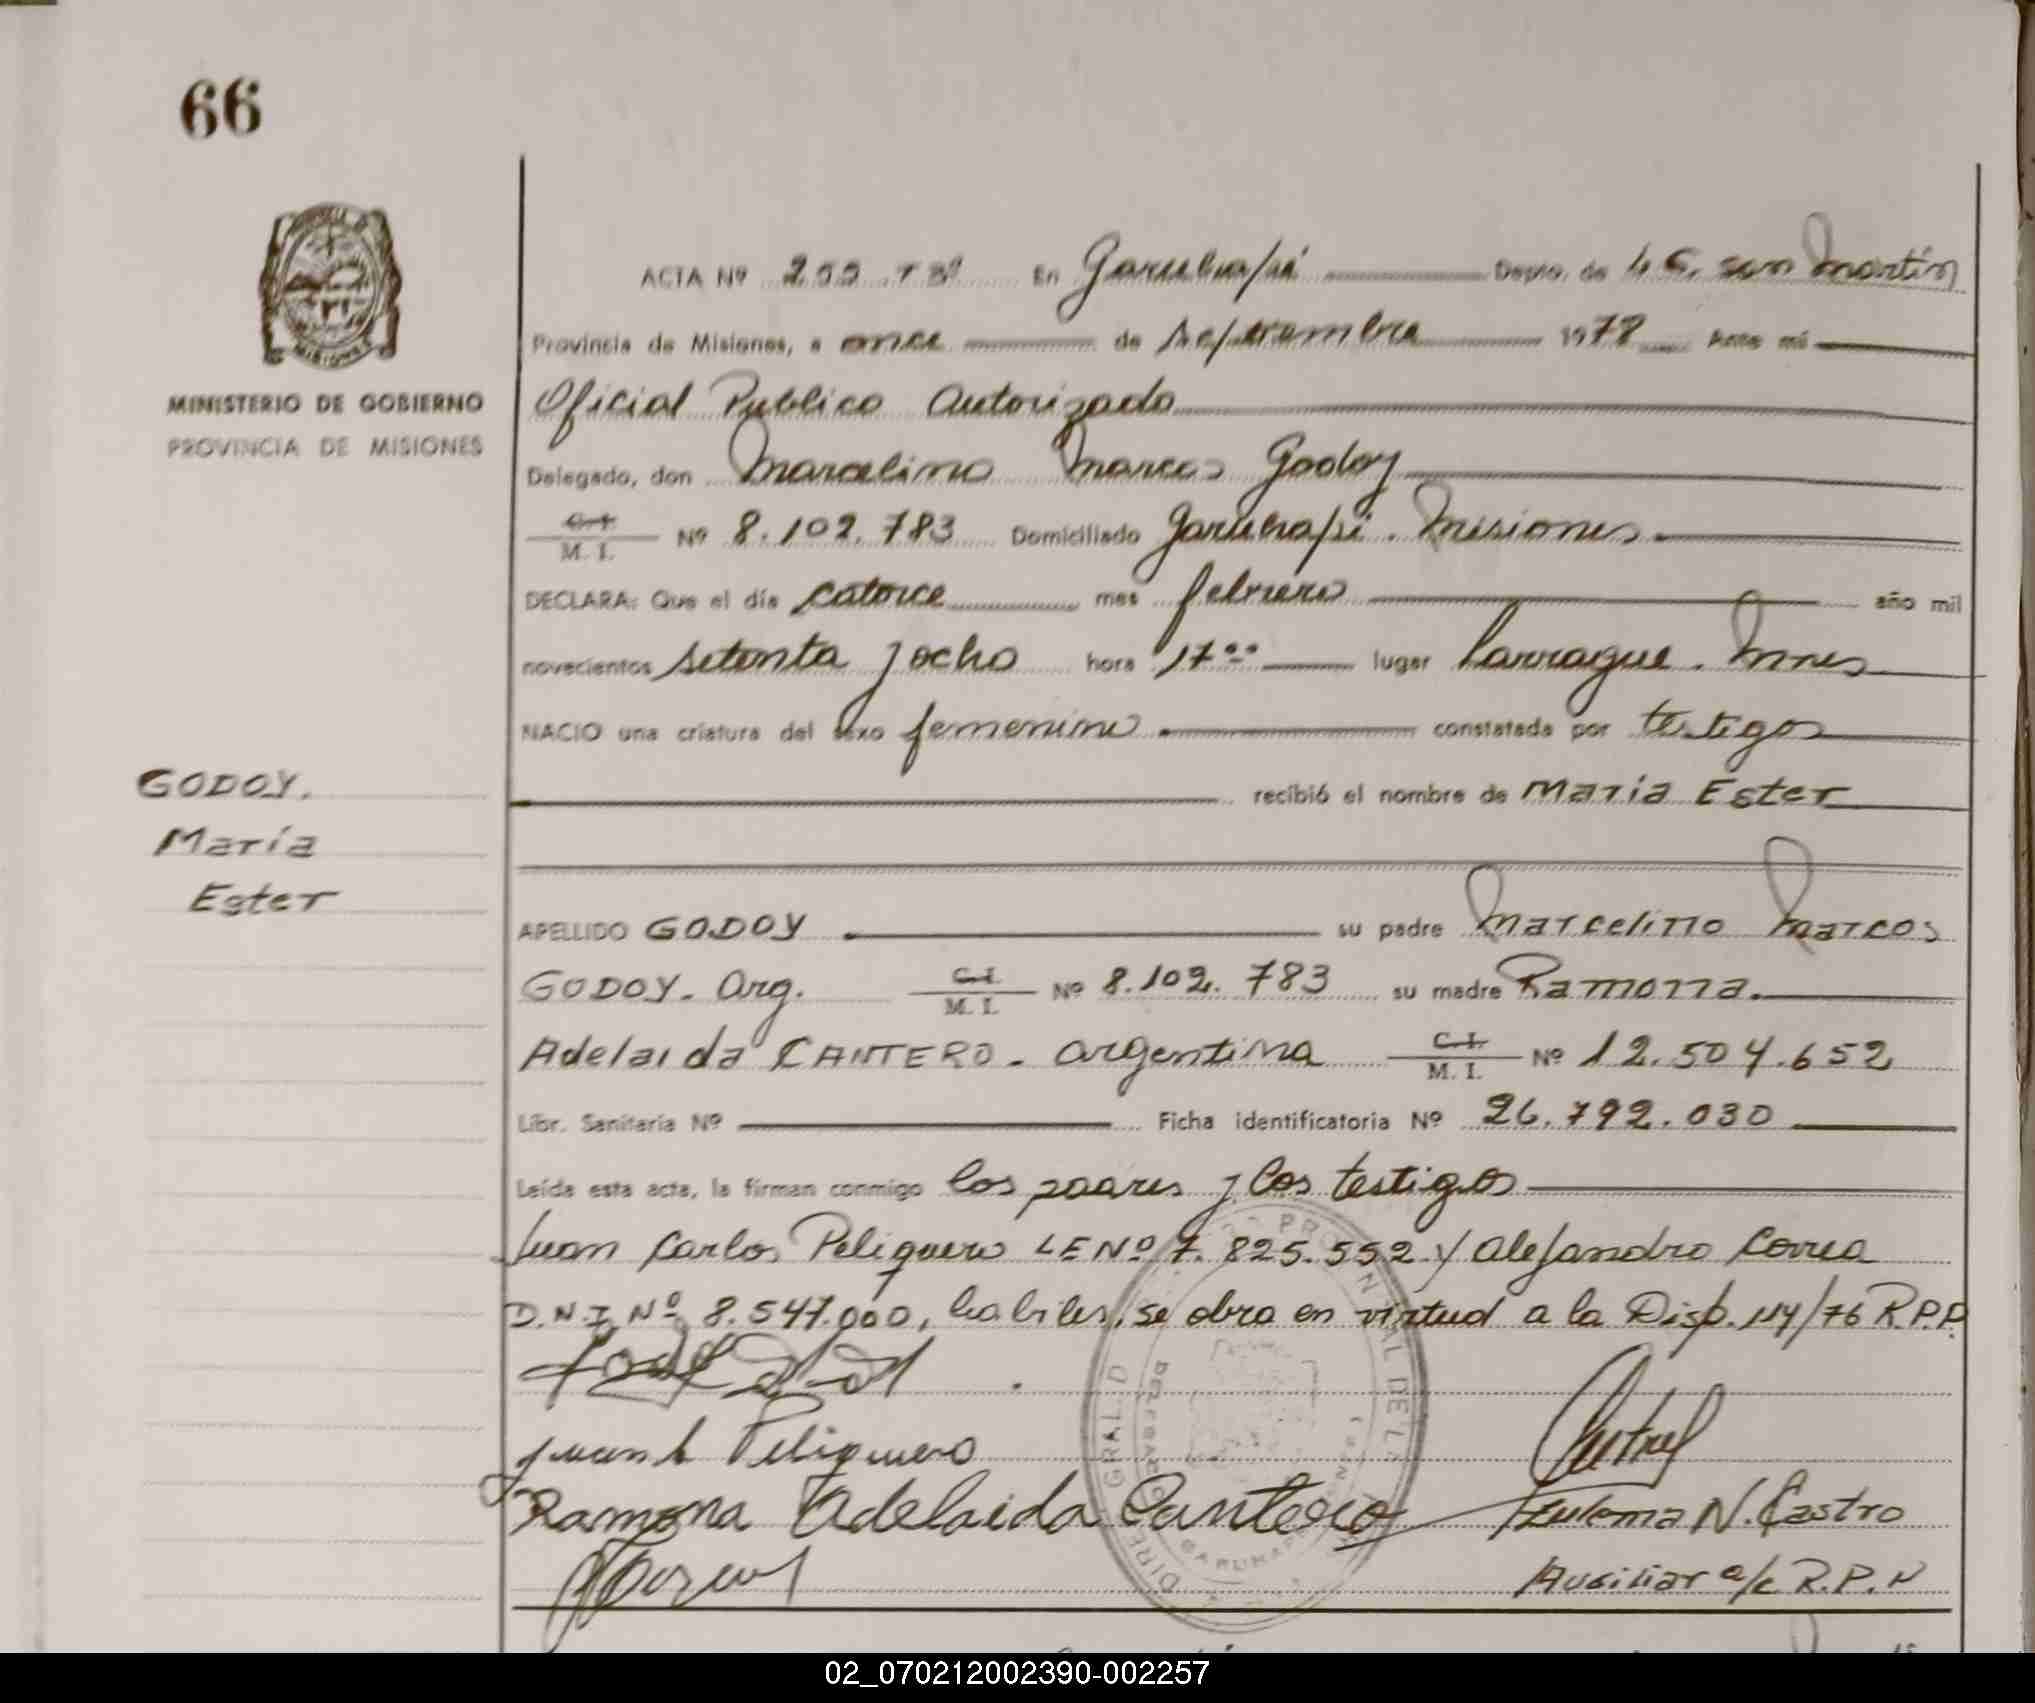 66
MINISTERIO DE GOBIERNO
PROVINCIA DE MISIONES
ACTA Nº En Garuhapé Depto. de L.G. San Martín
Provincia de Misiones, a once de Septiembre 1978 Ante mí
Oficial Publico Autorizado
Delegado, don Marcelino Marcos Godoy
C.I. M. I. Nº 8.102.783 Domiciliado Garuhapé. Misiones
DECLARA: Que el día catorce mes febrero año mil
novecientos setenta y ocho hora 17ºº lugar Larrague. Mnes
NACIO una criatura del sexo femenino constatada por testigos
GODOY.
recibió el nombre de Maria Ester
María
Ester
APELLIDO GODOY su padre Marcelino Marcos
GODOY. Arg. C.I. M. I. Nº 8.102.783 su madre Ramona.
Adelaida CANTERO. argentina C.I. M. I. Nº 12.504.652
Libr. Sanitaria Nº Ficha identificatoria Nº 26.792.030
Leída esta acta, la firman conmigo los padres y los testigos
Juan Carlos Peliquero LE Nº 7.825.552 y Alejandro Correa
D.N.I. Nº 8.547.000, habiles, se obra en virtud a la Disp. 114/76 R.P.P.
Juan C Peliquero
Ramona Adelaida Cantero
Zulema N. Castro
Auxiliar a/c R.P.N
02_070212002390-002257